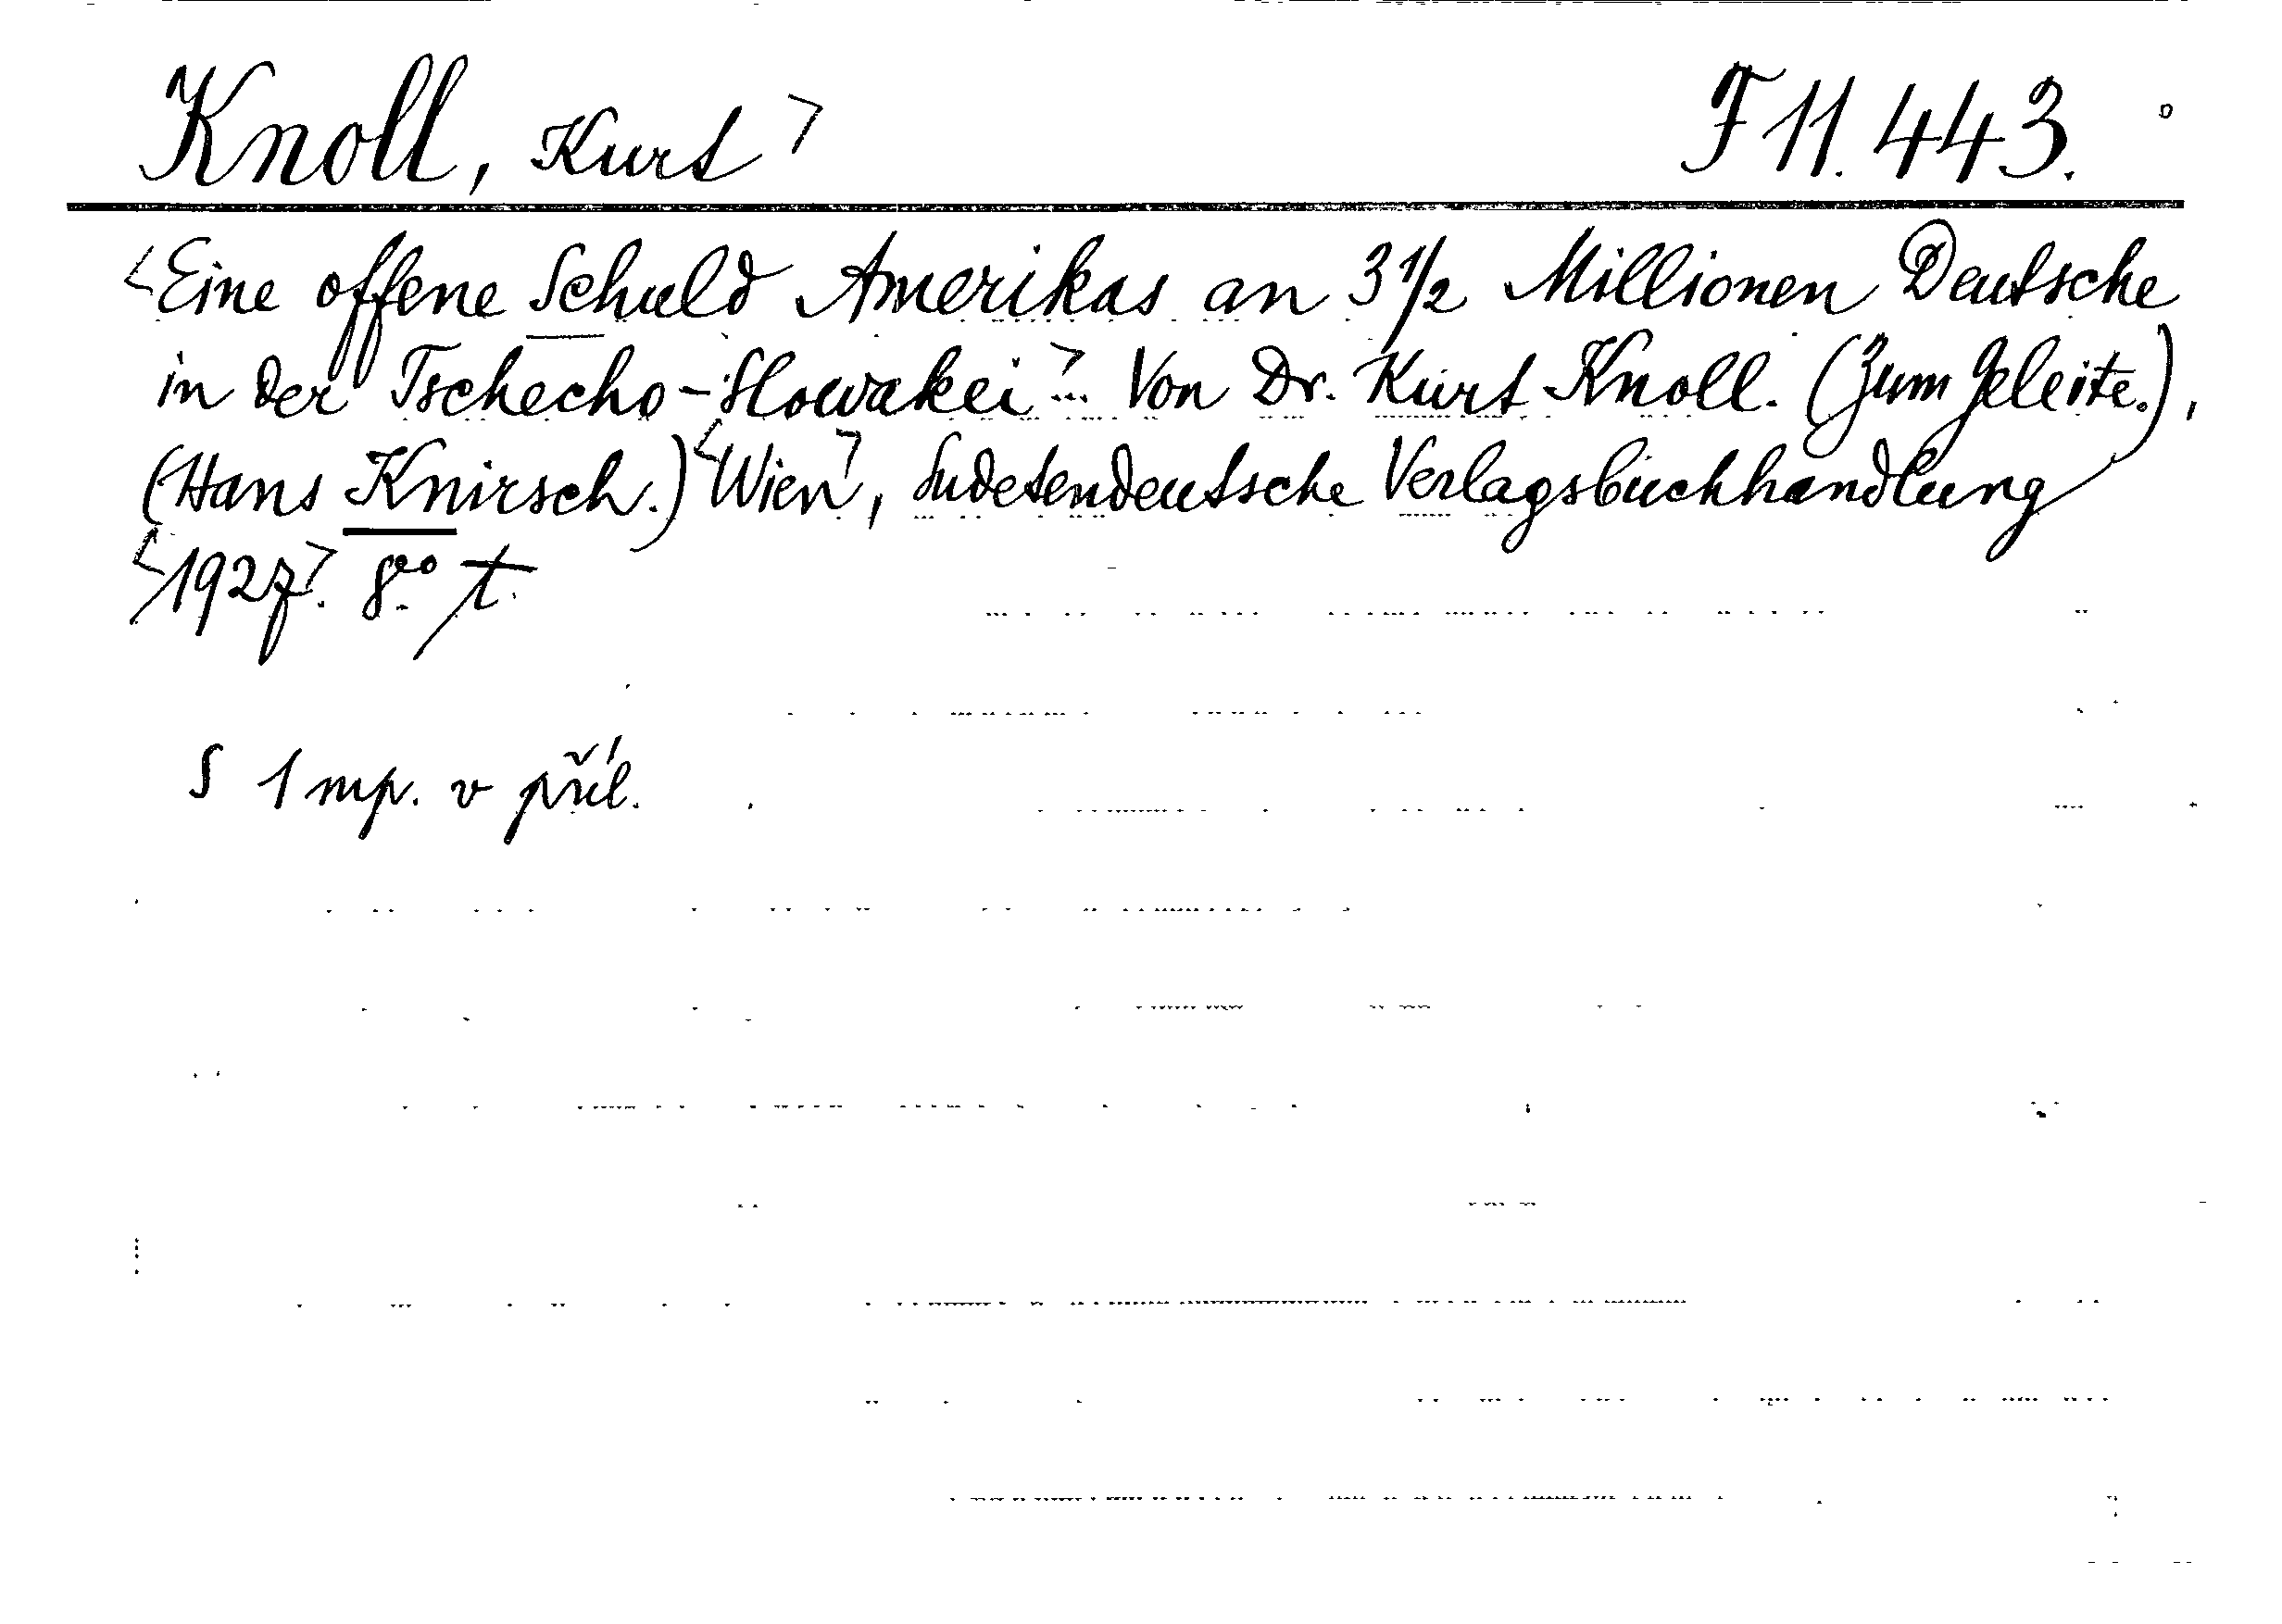 Knoll, Kurt F 11.443.
Eine offene Schuld Amerikas an 3 1/2 Millionen Deutsche
in der Tschecho-Slowakei... Von Dr. Kurt Knoll. (Zum Geleite.),
(Hans Knirsch.) Wien, Sudetendeutsche Verlagsbuchhandlung
1927. 8° t.
S 1 mp. v příl.